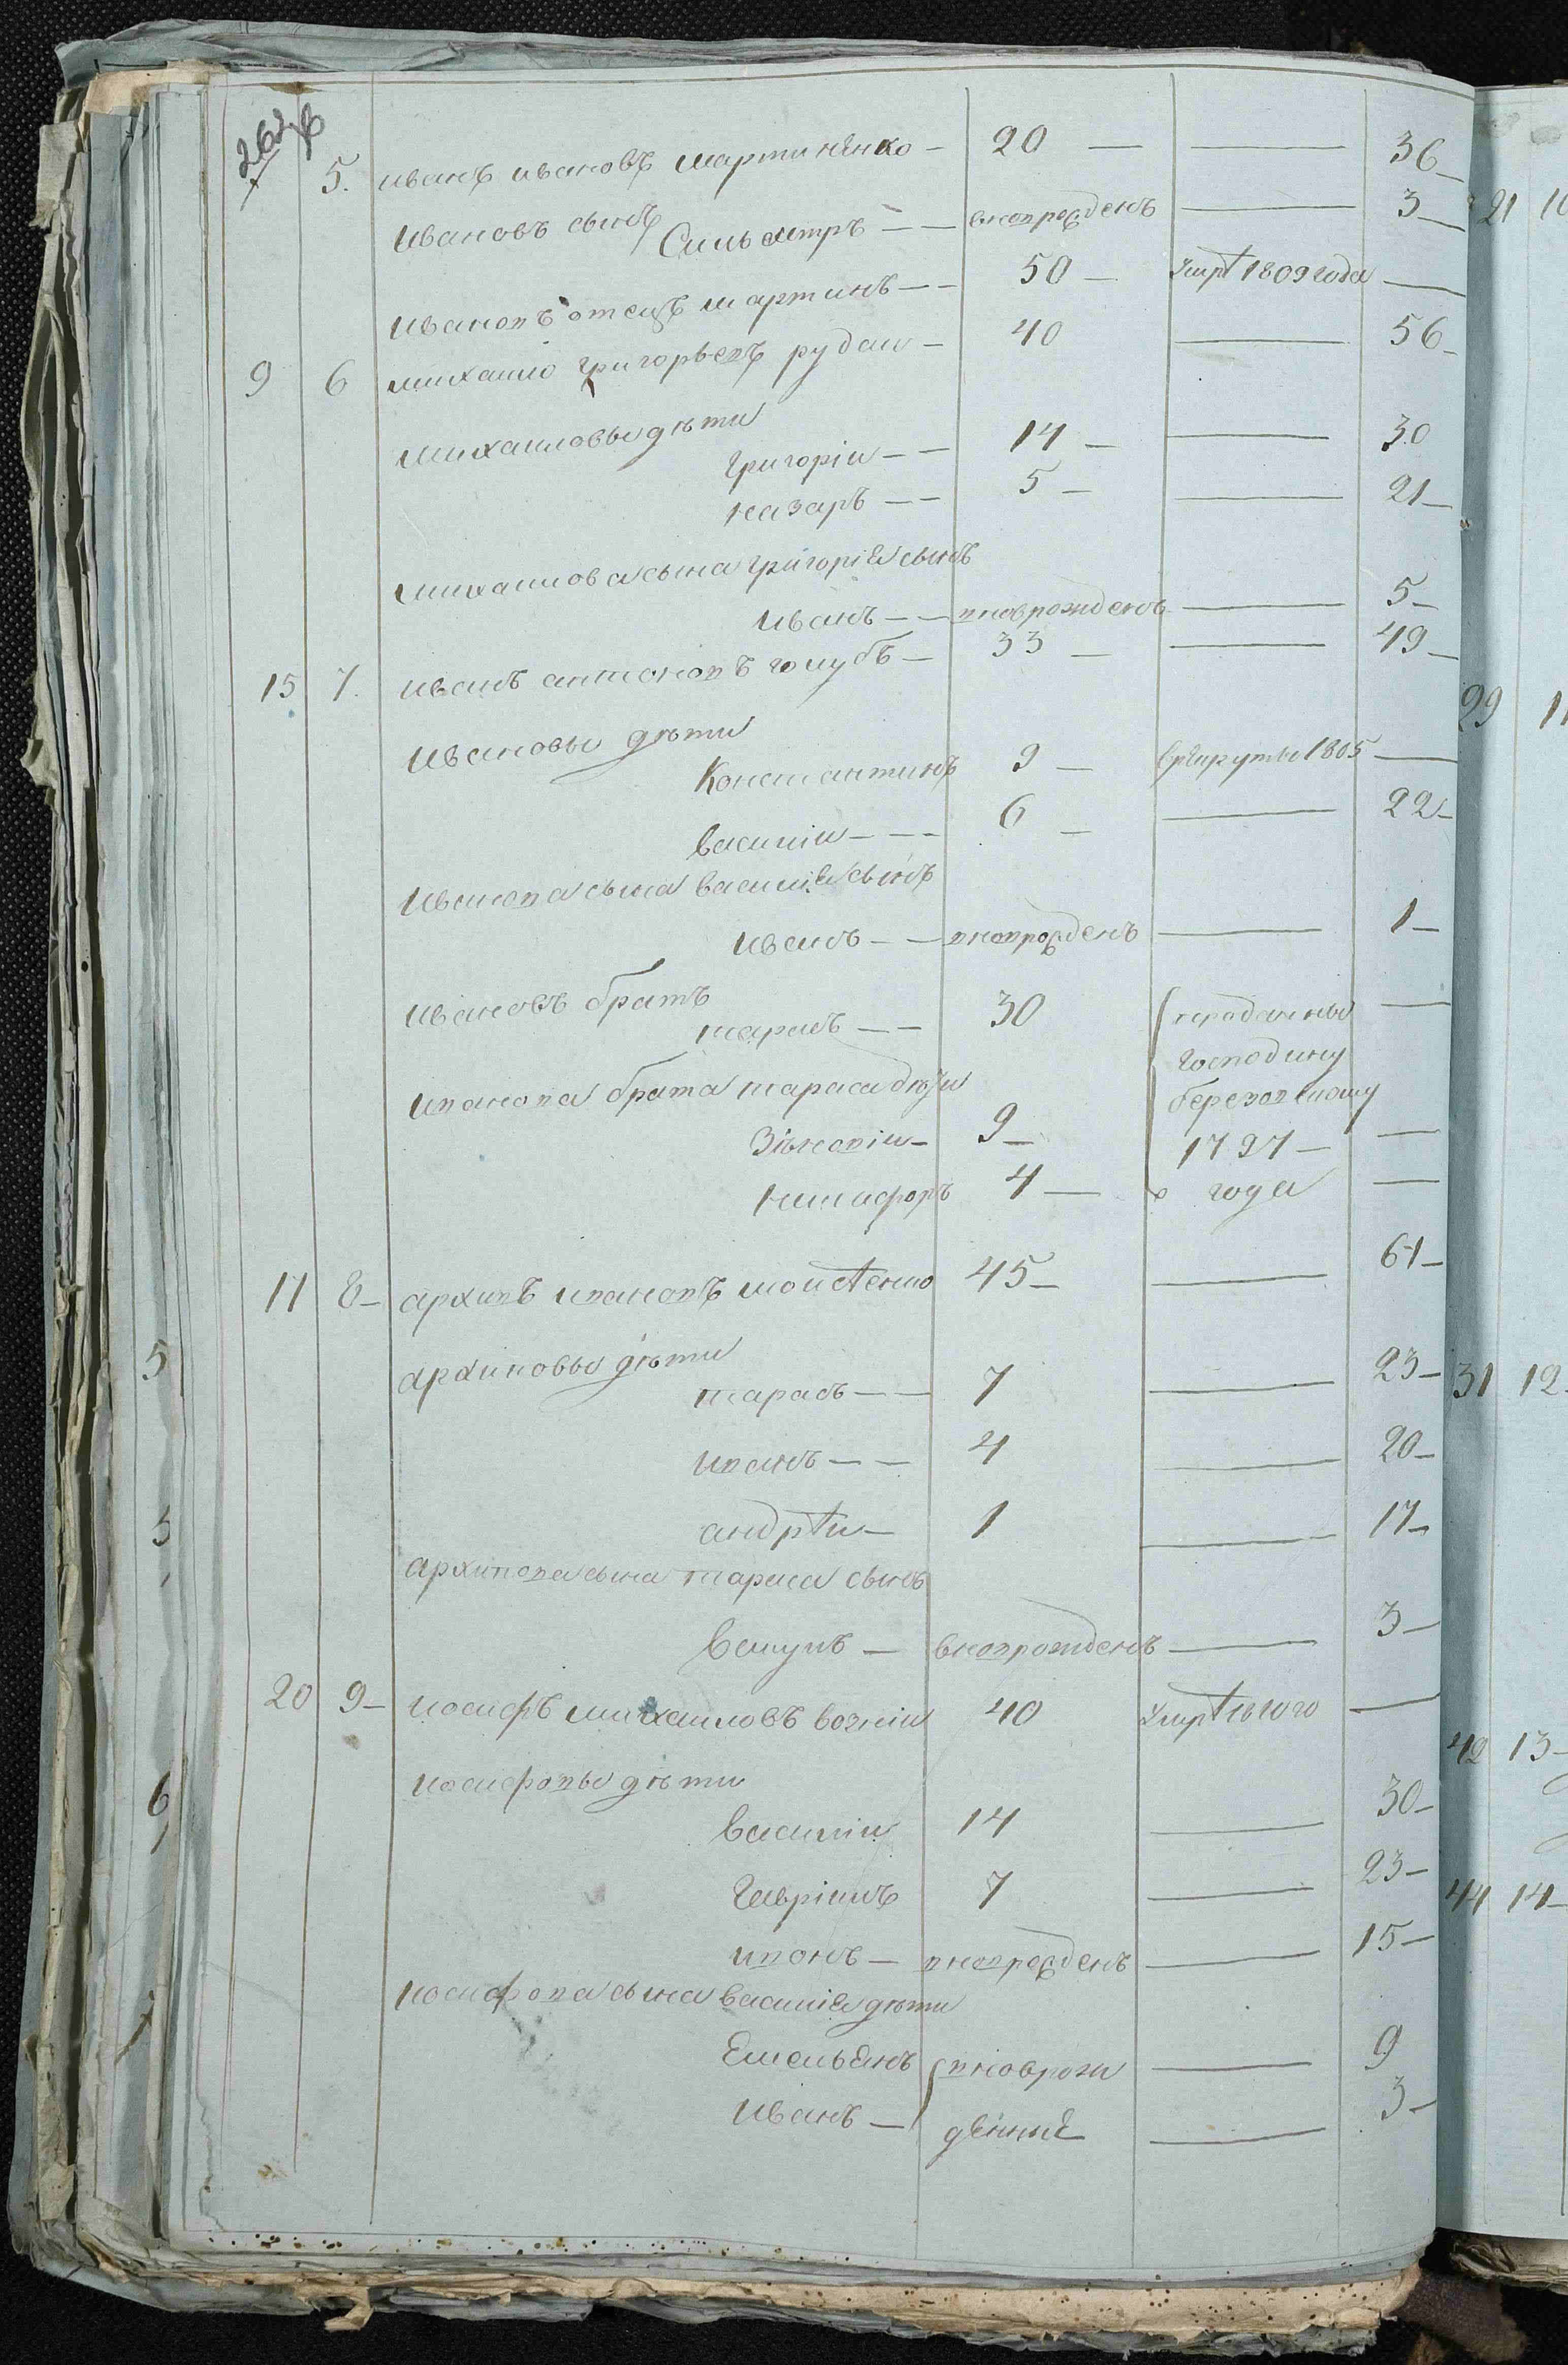 262
5. иванъ ивановъ мартинѣнко - 20 — — 36
ивановъ сынъ Сильѵестръ - - вновроѣденъ — 3
ивановъ отецъ мартинъ - - 50 - умре 1809 года —
9 6 михаило григорьевъ рудаи - 40 — 56
михаиловы дѣти
григоріи - - 14 - — 30
назаръ - - 5 - — 21
михаилова сына григорія сынъ
иванъ - - вноврожденъ — 5
15 7. иванъ антоновъ голубъ - 33 - — 49
ивановы дѣти
Константинъ 9 - врекруты 1805 —
василіи - - - 6 - — 22
иванова сына василія сынъ
иванъ - - вноврожденъ — 1
ивановъ братъ
тарасъ - - 30 проданные —
господину
иванова брата тараса дѣти
березовскому
Зѣновіи - 9 - 1797 —
никифоръ 4 — года —
11 8 - архипъ ивановъ моисеенко 45 - — 61
архиповы дѣти
тарасъ - - 7 — 23
иванъ - - 4 — 20
андреи - 1 — 17
архипова сына тараса сынъ
вакулъ - вноврожденъ — 3
20 9 - иосифъ михаиловъ возніи 40 умре 1810го —
иосифовы дѣти
василіи 14 — 30
гавріилъ 7 — 23
иванъ - вноврожденъ — 15
иосифова сына василія дѣти
Емельянъ вноврож — 9
иванъ - дѣнніе — 3
5
5
6
21 10
29 11
31 12
42 13
44 14